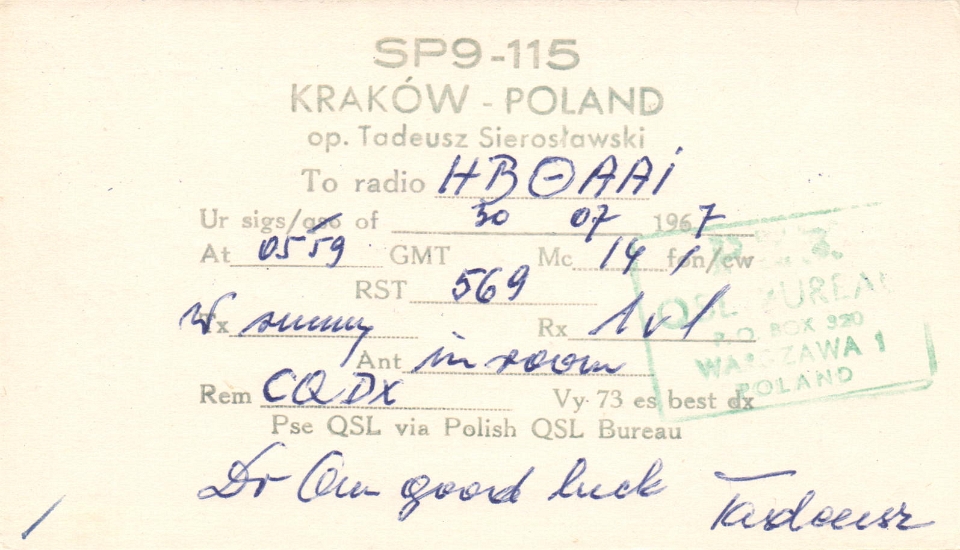 SP9-115
KRAKÓW - POLAND
op. Tadeusz Sierosławski
To radio HBØAAI
Ur sigs/qso of 30 07 1967
At 0559 GMT Mc 14 fon/cw
RST 569
Wx sunny Rx 1v1
Ant in room
Rem CQDX Vy 73 es best dx
Pse QSL via Polish QSL Bureau
Dr Om good luck Tadeusz
QSL BUREAU
P.O. BOX 320
WARSZAWA 1
POLAND